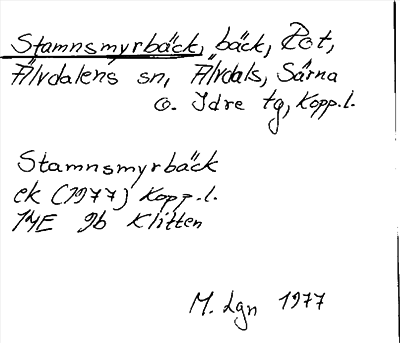 Stamnsmyrbäck, bäck, Rot,
Älvdalens sn, Älvdals, Särna
o. Idre tg, Kopp.l.
Stamnsmyrbäck
ek (1977) Kopp.l.
14E 9b Klitten
M. Lgn 1977